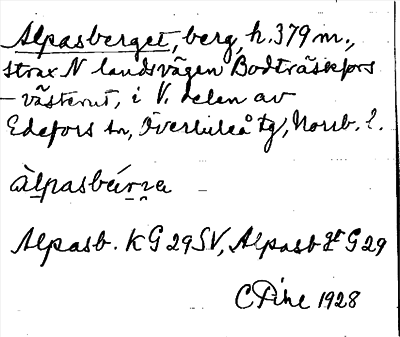 Alpasberget, berg, h. 379 m.,
strax N landsvägen Bodträskfors
– västerut, i V. delen av
Edefors sn, Överluleå tg, Norrb. l.
àlpasbár̯i̯a
Alpasb. KG 29 SV, Alpasb GK G 29
C Pihl 1928